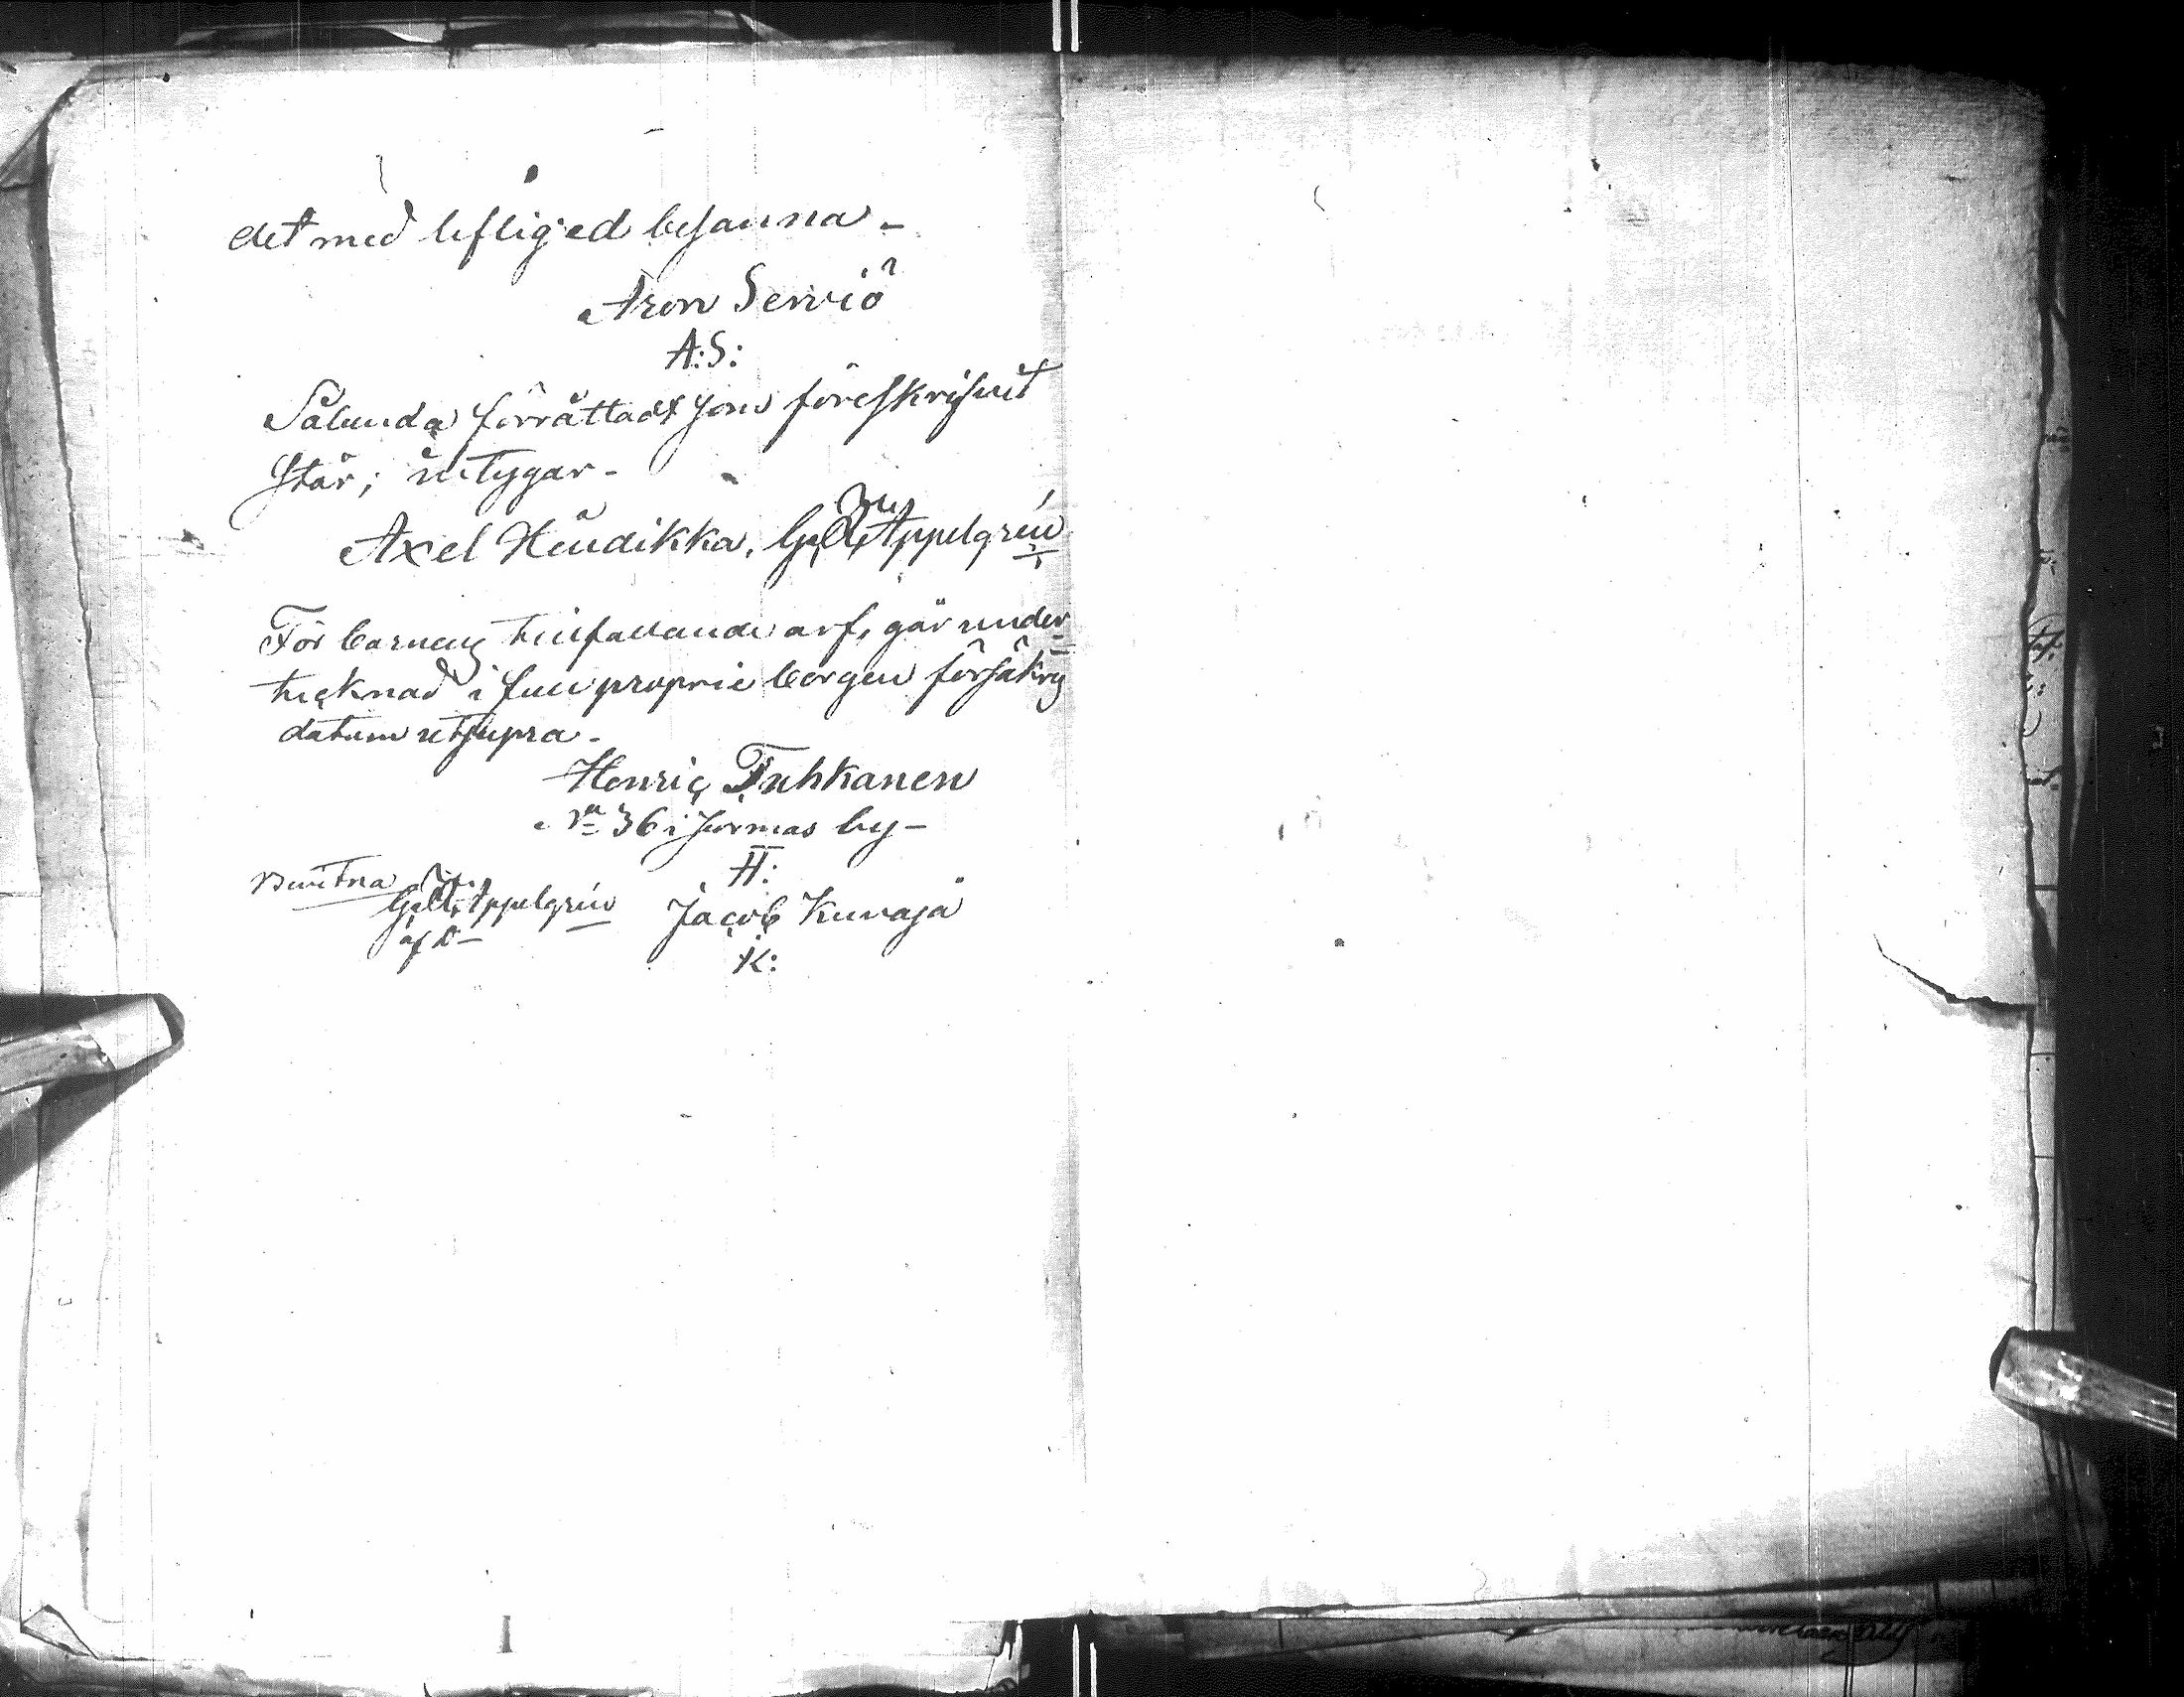 det med liflig ed besanna -
Aron Serviö
A:S:
Sålunda förrättadt som föreskrifvit
står; intygar -
Axel Heudikka, Appelgrén
För barnens tillfallande arf, går under-
tecknad i full proprie borgen försäkrg
datum ut supra -
Henric Tuhkanen
No 36 i Jormas by -
H:
Jacob Kuvaja
K:
Bevitna
Appelgrén
af D -